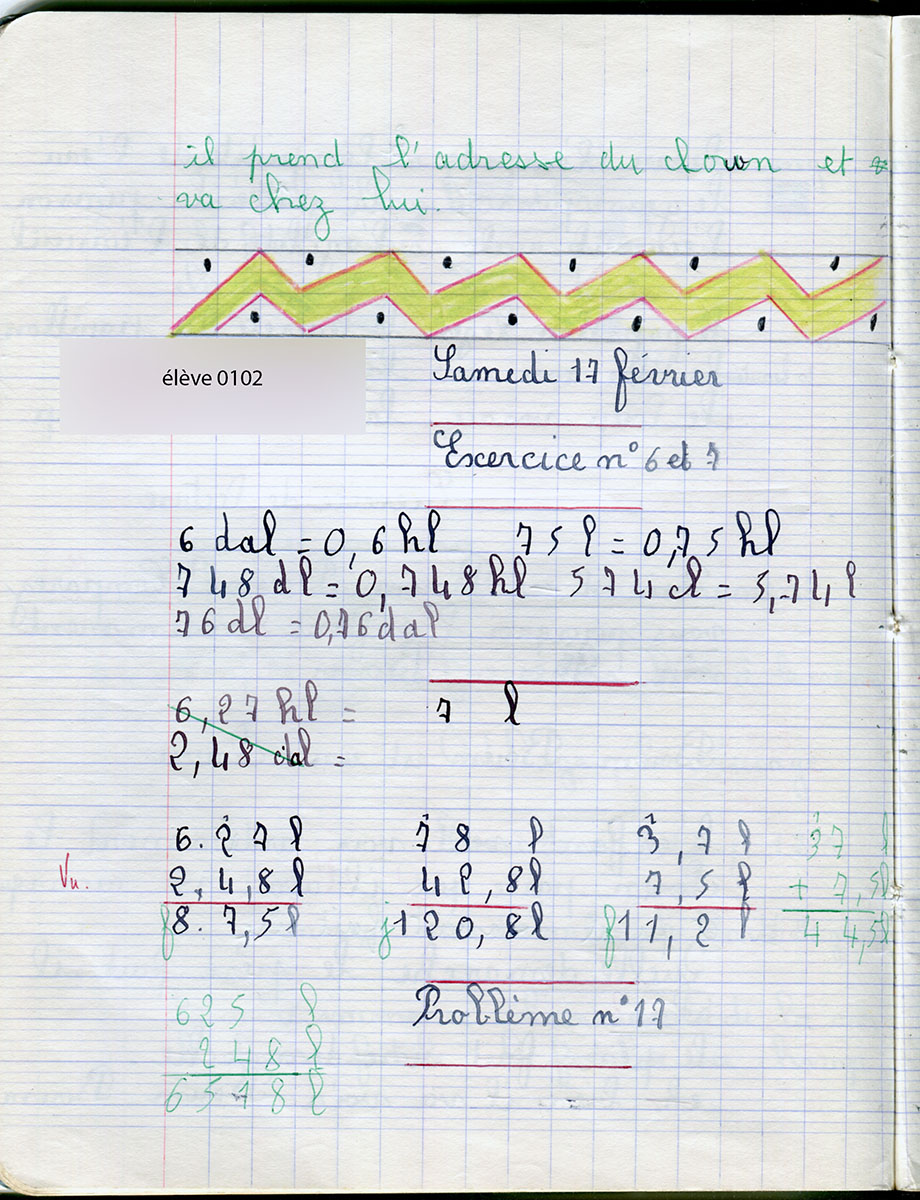 il prend l'adresse du clown et
va chez lui.
élève 0102
Samedi 17 février
Exercice n° 6 et 7
6 dal = 0,6 hl 75 l = 0,75 hl
748 dl = 0,748 hl 574 cl = 5,74 l
76 dl = 0,76 dal
6,27 hl = 7 l
2,48 dal =
6.27 l 78 l 3,7 l 37 l
Vu. 2,4,8 l 42,8 l 7,5 l + 7,5 l
f 8.7,5 l j 120,8 l f 11,2 l 44,5 l
625 l Problème n° 17
248 l
6578 l